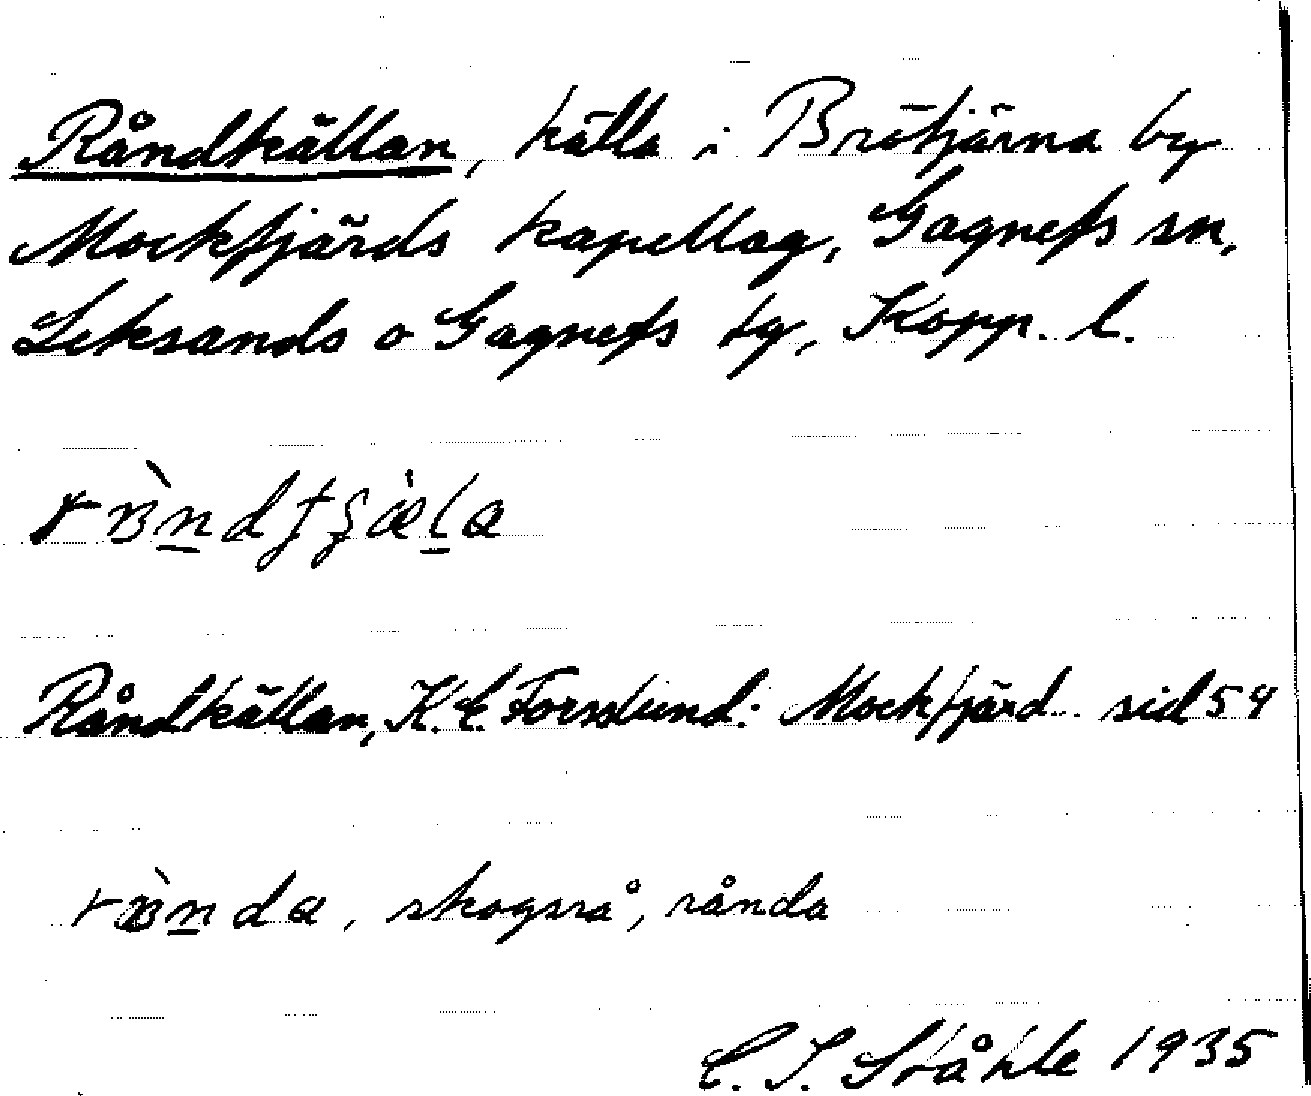 Råndkällan, källa i Brötjärna by
Mockfjärds kapellag, Gagnefs sn,
Leksands o Gagnefs tg, Kopp. l.
Råndkällan, K.E Forslund: Mockfjärd sid 54
skogsrå, rånda
C. I. Ståhle 1935